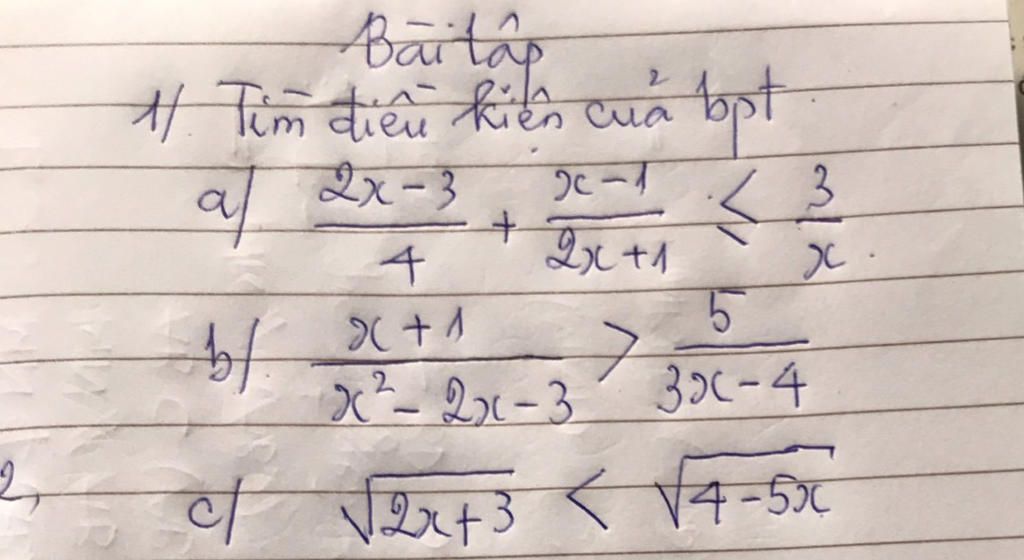 Bài tập
1/ Tìm điều kiện của bpt
a/ \frac{2x-3}{4} + \frac{x-1}{2x+1} ≤ \frac{3}{x}.
b/ \frac{x+1}{x²-2x-3} > \frac{5}{3x-4}
2, c/ √(2x+3) < √(4-5x)